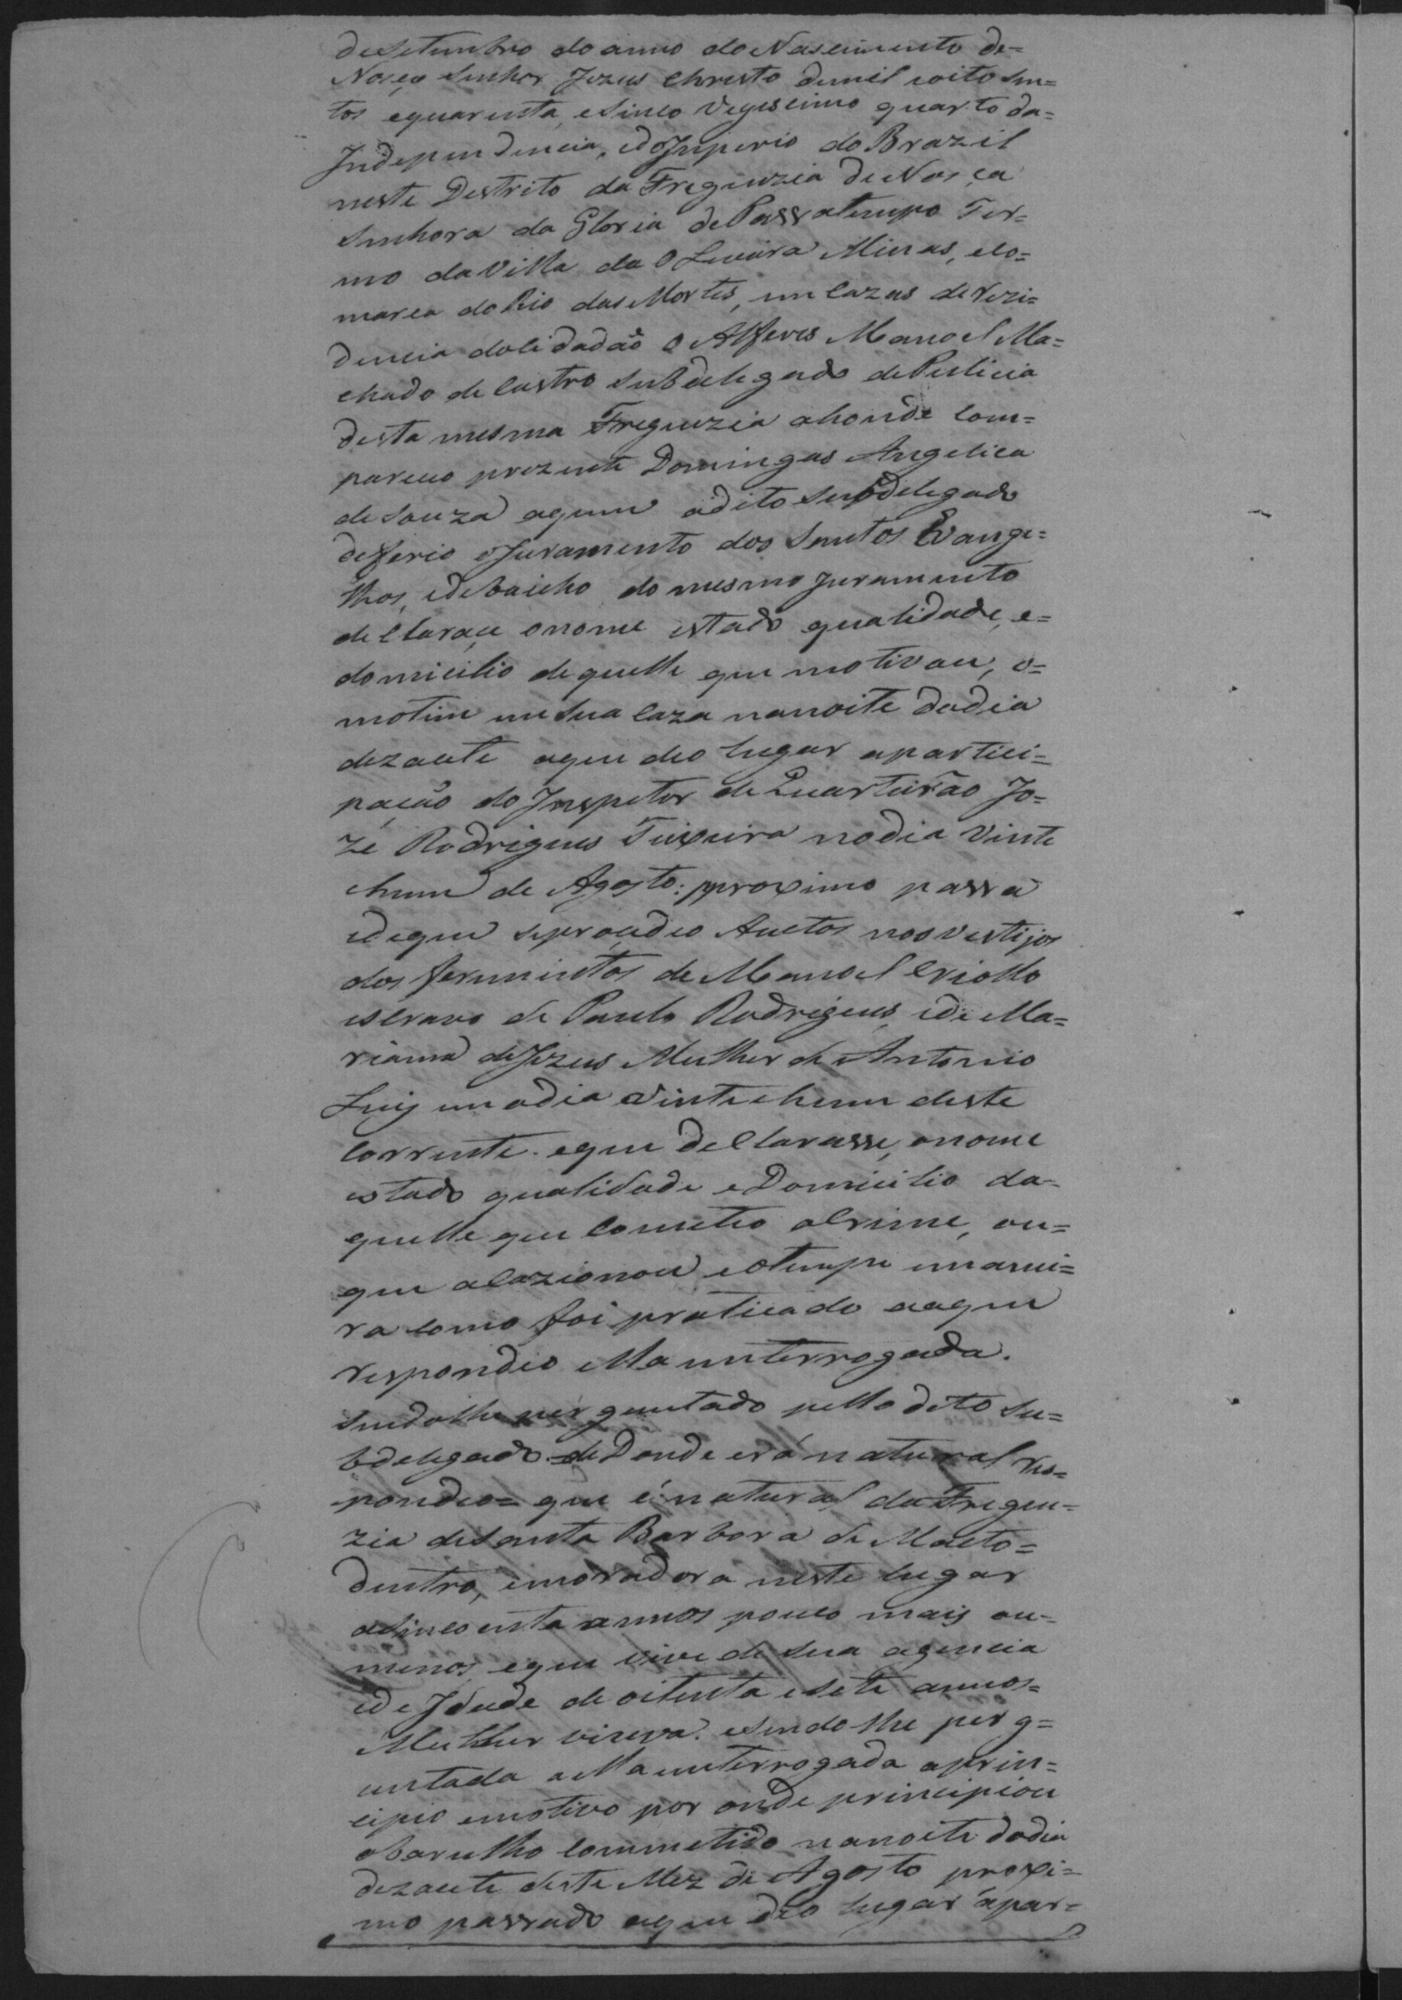 de Setembro do anno do Nascimento de=
Noso Senhor Jezus Christo demil eoito sen=
tos equarenta, esinco vegesimo quarto da=
Independencia, edo Imperio do Brazil
neste Destrito da Freguezia de Nosça
Senhora da Gloria de Passatempo Ter=
mo da Villa da Oliveira Minas, eco=
marca do Rio das Mortes, em cazas de rezi=
dencia docidadão o Alferes Manoel Ma=
chado de Castro Subdelegado de Pulicia
desta mesma Freguezia ahonde com=
pareceo prezente Domingas Angelica
de Souza aquem odito Subdelegado
deferio o Juramento dos Santos Evange=
lhos, edebaicho do mesmo Juramento
declaraçe onome estado qualidade, e=
domicilio dequelle que motivou, o=
motim em sua caza nanoite dodia
dezacete aque deo lugar apartici=
pação do Inspetor de Quarteirão Jo=
zé Rodrigues Teixeira nodia vinte
ehum de Agosto: proximo passa
edeque seproçedeo Auctos nos vestijos
dos ferimentos de Manoel Criollo
escravo de Paulo Rodrigues, ede Ma=
rianna de Jezus Mulher de Antonio
Luiz em odia vinte ehum deste
Corrente. eque declarasse, onome
estado qualidade e Domicilio da=
quelle que Cometeo oCrime, ou=
que acazionou eotempo emanei=
ra como foi praticado aaque
respondeo ella enterrogada.
Sendolhe perguntado pello dito Su=
bdelegado = de Donde erá natural res=
pondeo = que é natural da Fregue=
zia de Santa Barbora do Matto=
dentro, emoradora neste lugar
asincoenta annos pouco mais ou=
menos, eque vive de sua agencia
ede Idade de oitenta esete annos=
Mulher viuva. esendo lhe perg=
untada aella enterrogada aprin=
cipio emotivo por onde principiou
obarulho commetido nanoite dodia
dezacete deste Mez de Agosto proxi=
mo passado aque deo lugar apar=